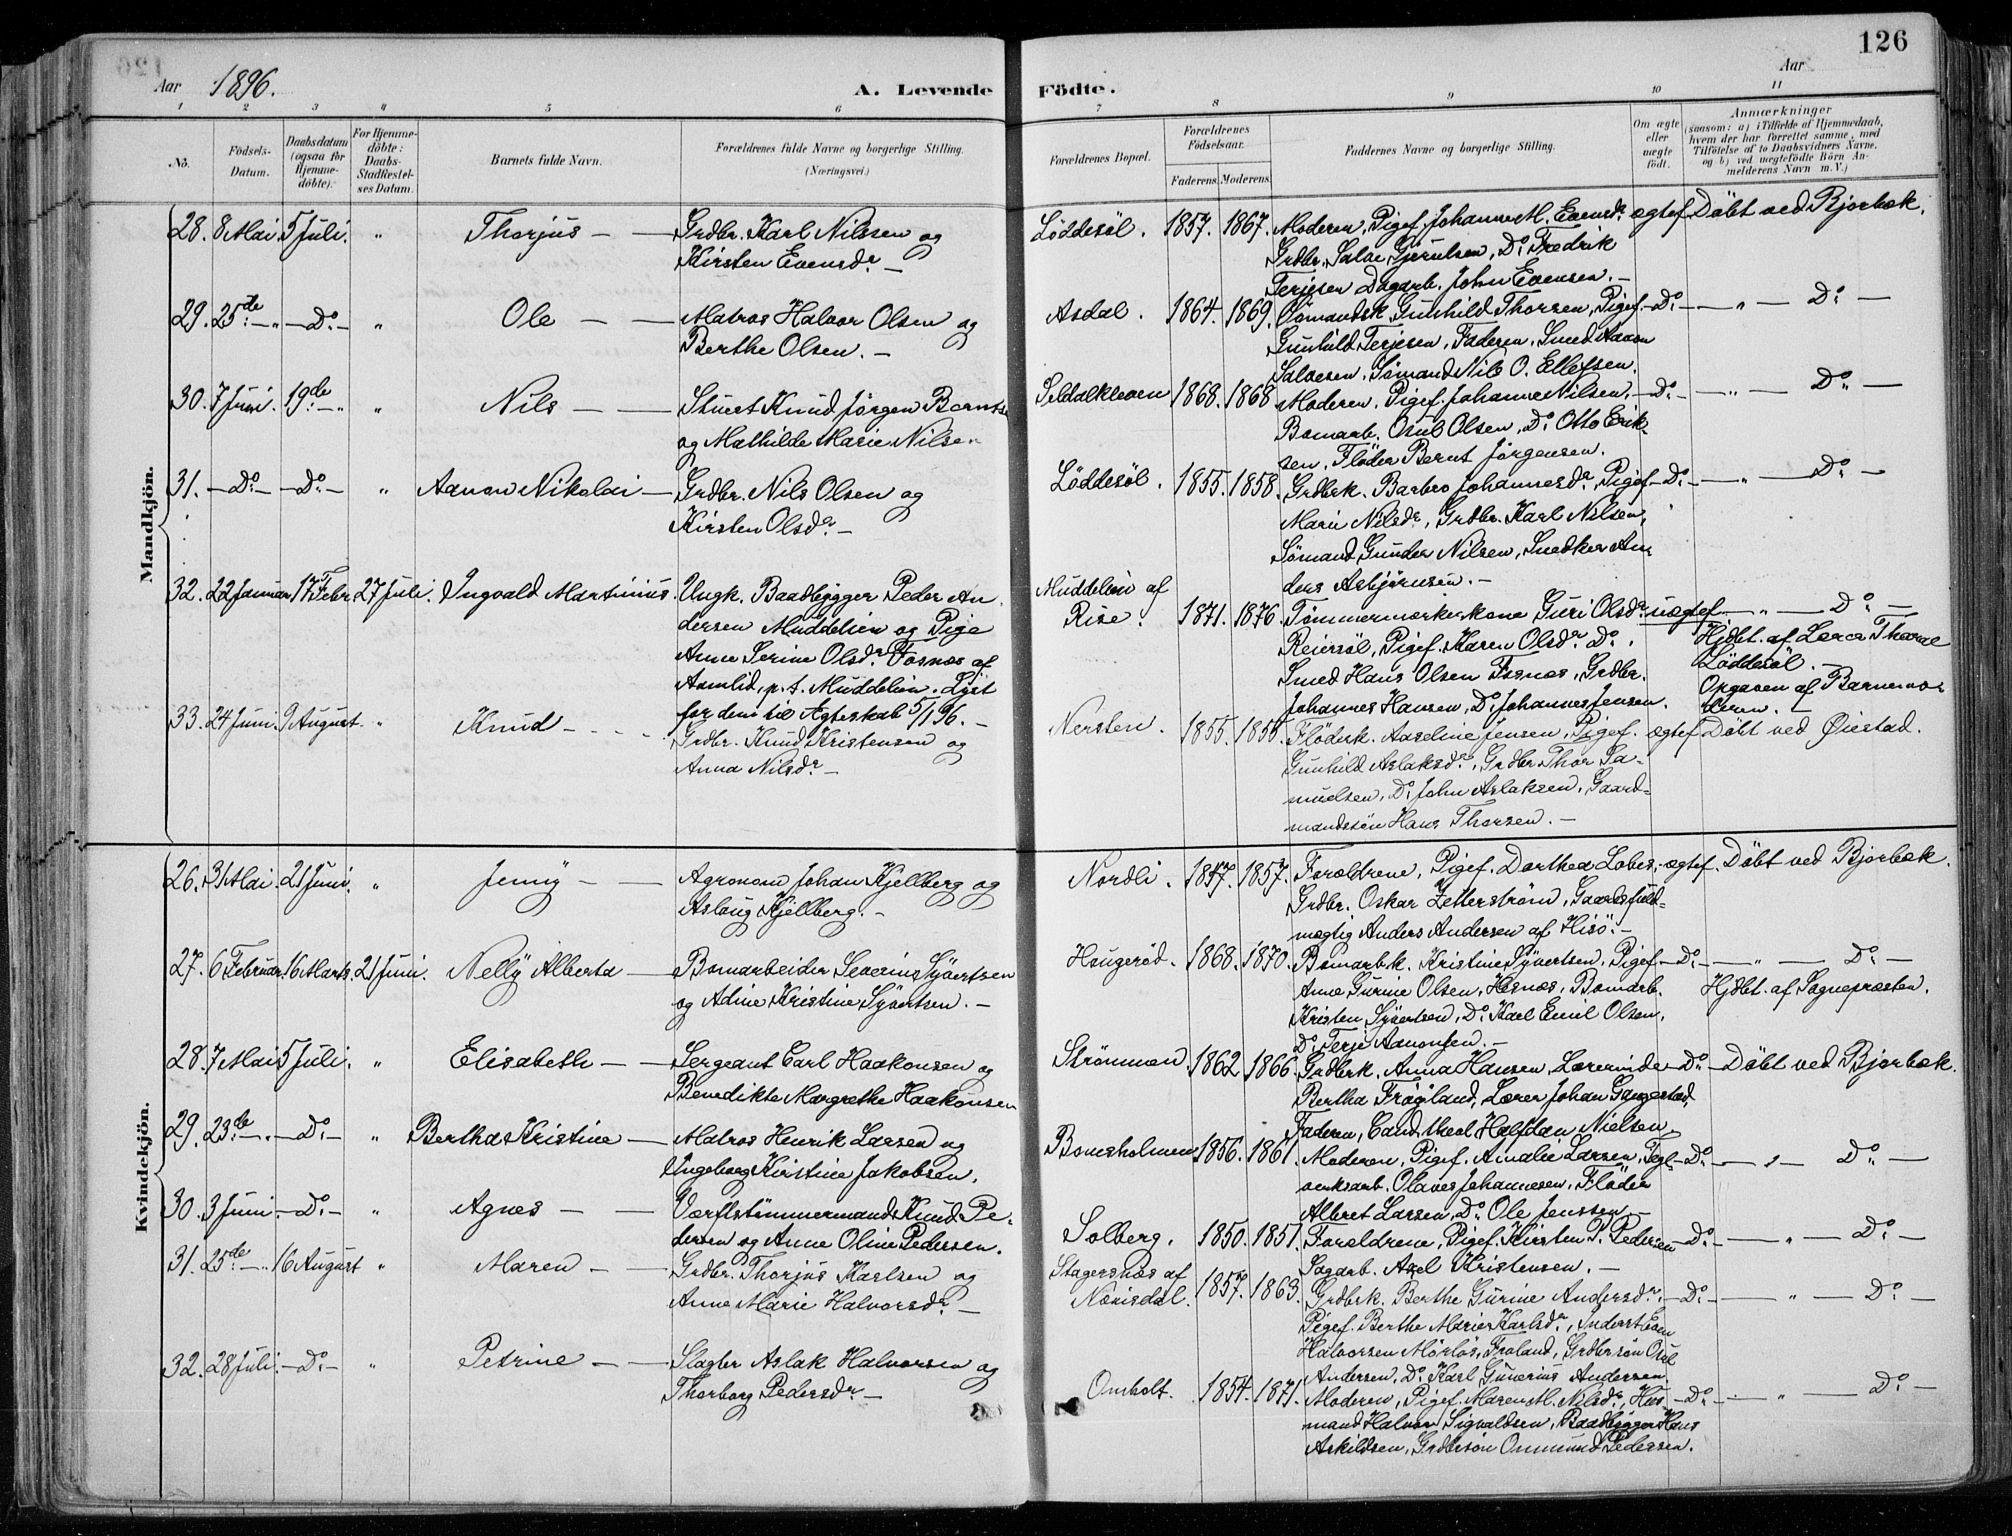 126
Aar 1896.
A. Levende Födte.
Aar
1 2 3 4 5 6 7 8 9 10 11
No.
Födsels-Datum.
Daabsdatum (ogsaa for Hjemme-döbte).
For Hjemme-döbte: Daabs-Stadfestel-ses Datum.
Barnets fulde Navn.
Forældrenes fulde Navne og borgerlige Stilling. (Næringsvei.)
Forældrenes Bopæl.
Forældrenes Födselsaar.
Faderens. Moderens.
Faddernes Navne og borgerlige Stilling.
Om ægte eller uægte födt.
Anmærkninger (saasom: a) i Tilfælde af Hjemmedaab, hvem der har forrettet samme, med Tilföielse af to Daabsvidners Navne, og b) ved uægtefödte Börn An-melderens Navn m.V.)
Mandkjön.
28. 8 Mai 5 Juli. " Thorjus — — Grdbr. Karl Nilssen og
Kirsten Evensdr. —
Løddesöl. 1857. 1867. Moderen, Pigef. Johanne M. Evensdr. ægtef. Döbt ved Bjorbæk.
Grdbr. Salve Gjerulsen, Do Fredrik
Terjesen Dagarb. John Evensen. —
29. 25de — " — Do — " Ole — — Matros Halvor Olsen og
Berthe Olsen. —
Asdal. 1864. 1869. Sömandsk. Gunhild Thorsen, Pigef. — Do — " — Do —
Gunhild Terjesen, Faderen, Smed Aanon
Salvesen, Sömand Nils O. Ellefsen.
30. 7 Juni. 19de — " " Nils — — Stuert Knud Jörgen Berntsen
og Mathilde Marie Nilsen
Seldalkleven 1868. 1868 Moderen, Pigef. Johanne Nilsen, — Do — " — Do —
Bomarb. Osul Olsen, Do Otto Erik-
sen, Fløder Bernt Jörgensen.
31. — Do — — Do — " Aanon Nikolai — Grdbr. Nils Olsen og
Kirsten Olsdr. —
Løddesöl. 1855. 1858. Grdbrk. Barbro Johannesdr, Pigef. — Do — " — Do —
Marie Nilsdr, Grdbr. Karl Nilsen,
Sömand Gunder Nilsen, Snedker An-
ders Asbjørnsen. —
32. 22 Januar 17 Febr. 27 Juli. Ingvald Martinius. Ungk. Baadbygger Peder An-
dersen Muddelien og Pige
Anne Serine Olsdr. Fosnæs af
Aamlid, p. t. Muddelien. Lyst
for dem til Ægteskab 5/1 96. —
Muddelien af
Rise. 1871. 1876. Tömmermerkerkone Guri Olsdr. uægtef. — " — Do —
Reiersöl, Pigef. Karen Olsdr. Do.
Smed Hans Olsen Fosnæs, Grdbr.
Johannes Hansen, Do Johannes Jensen.
Hjdbt. af Lærer Thorne
Løddesöl. —
Opgaven af Barnemo-
deren. —
33. 24 Juni. 9 August. " Knud — — — Grdbr. Knud Kristensen og
Anna Nilsdr. —
Nersten. 1855. 1855. Fløderk. Aaseline Jensen, Pigef. ægtef. Döbt ved Øiestad.
Gunhild Aslaksdr, Grdbr Thor Sa-
muelsen, Do John Aslaksen, Gaard-
mandssön Hans Thorsen. —
Kvindekjön.
26. 31 Mai. 21 Juni. " Jenny — — Agronom Johan Kjellberg og
Aslaug Kjellberg. —
Nordli. 1847. 1857. Forældrene, Pigef. Dorthea Lobes, ægtef. Döbt ved Bjorbæk.
Grdbr. Oskar Zetterström, Gaardsfuld-
mægtig Anders Andersen af Hisö. —
27. 6 Februar. 16 Marts. 21 Juni. Nelly Alberta — Bomarbeider Severin Syvertsen
og Adine Kristine Syvertsen. —
Hougeröd. 1868. 1870. Bomarbk. Kristine Syvertsen, Pigef. — Do — " — Do —
Anne Gurine Olsen, Hesnæs, Bomarb.
Kristen Syvertsen, Do Karl Emil Olsen,
Do Terje Aanonsen. —
Hjdbt. af Sognepræsten.
28. 7 Mai 5 Juli. " Elisabeth — — Sergeant Carl Haakonsen og
Benedikte Margrethe Haakonsen
Strömmen. 1862 1866. Grdbrk. Anna Hansen, Lærerinde Do — Döbt ved Bjorbæk.
Bertha Frøiland, Lærer Johan Gangestad,
Faderen, Cand. theol Halfdan Nielsen.
29. 23de — " — Do — " Bertha Kristine — Matros Henrik Larsen og
Ingeborg Kirstine Jakobsen.
Bomsholmen 1856. 1861. Moderen, Pigef. Amalie Larsen, Tegl- — Do — " — Do —
verksarb. Olaves Johannesen, Fløder
Albret Larsen, Do Ole Jenssen —
30. 3 Juni. — Do — " Agnes — — Værftstömmermand Knud Pe-
dersen og Anne Oline Pedersen.
Solberg. 1850. 1851. Forældrene, Pigef. Kirsten P. Pedersen — Do — " — Do —
Sagarb. Axel Kristensen. —
31. 25de — " 16 August " Maren — — Grdbr. Thorjus Karlsen og
Anne Marie Halvorsdr —
Stagersnæs af
Nævisdal. 1857. 1863. Grdbrk. Berthe Gurine Andersdr. — Do — " — Do —
Pigef. Berthe Marie Karlsdr, Inderst Even
Halvorsen Mörfos, Froland, Grdbr sön Osul
Andersen, Do Karl Gunerius Andersen.
32. 28 Juli. — Do — " Petrine — — Slagter Aslak Halvorsen og
Thorborg Pedersdr —
Omholt. 1854. 1871. Moderen, Pigef. Maren M. Nilsdr, Hus- — Do — " — Do —
mand Halvor Sigvaldsen, Baadbygger Hans
Askildsen, Grdbrsön Ommund Pedersen.